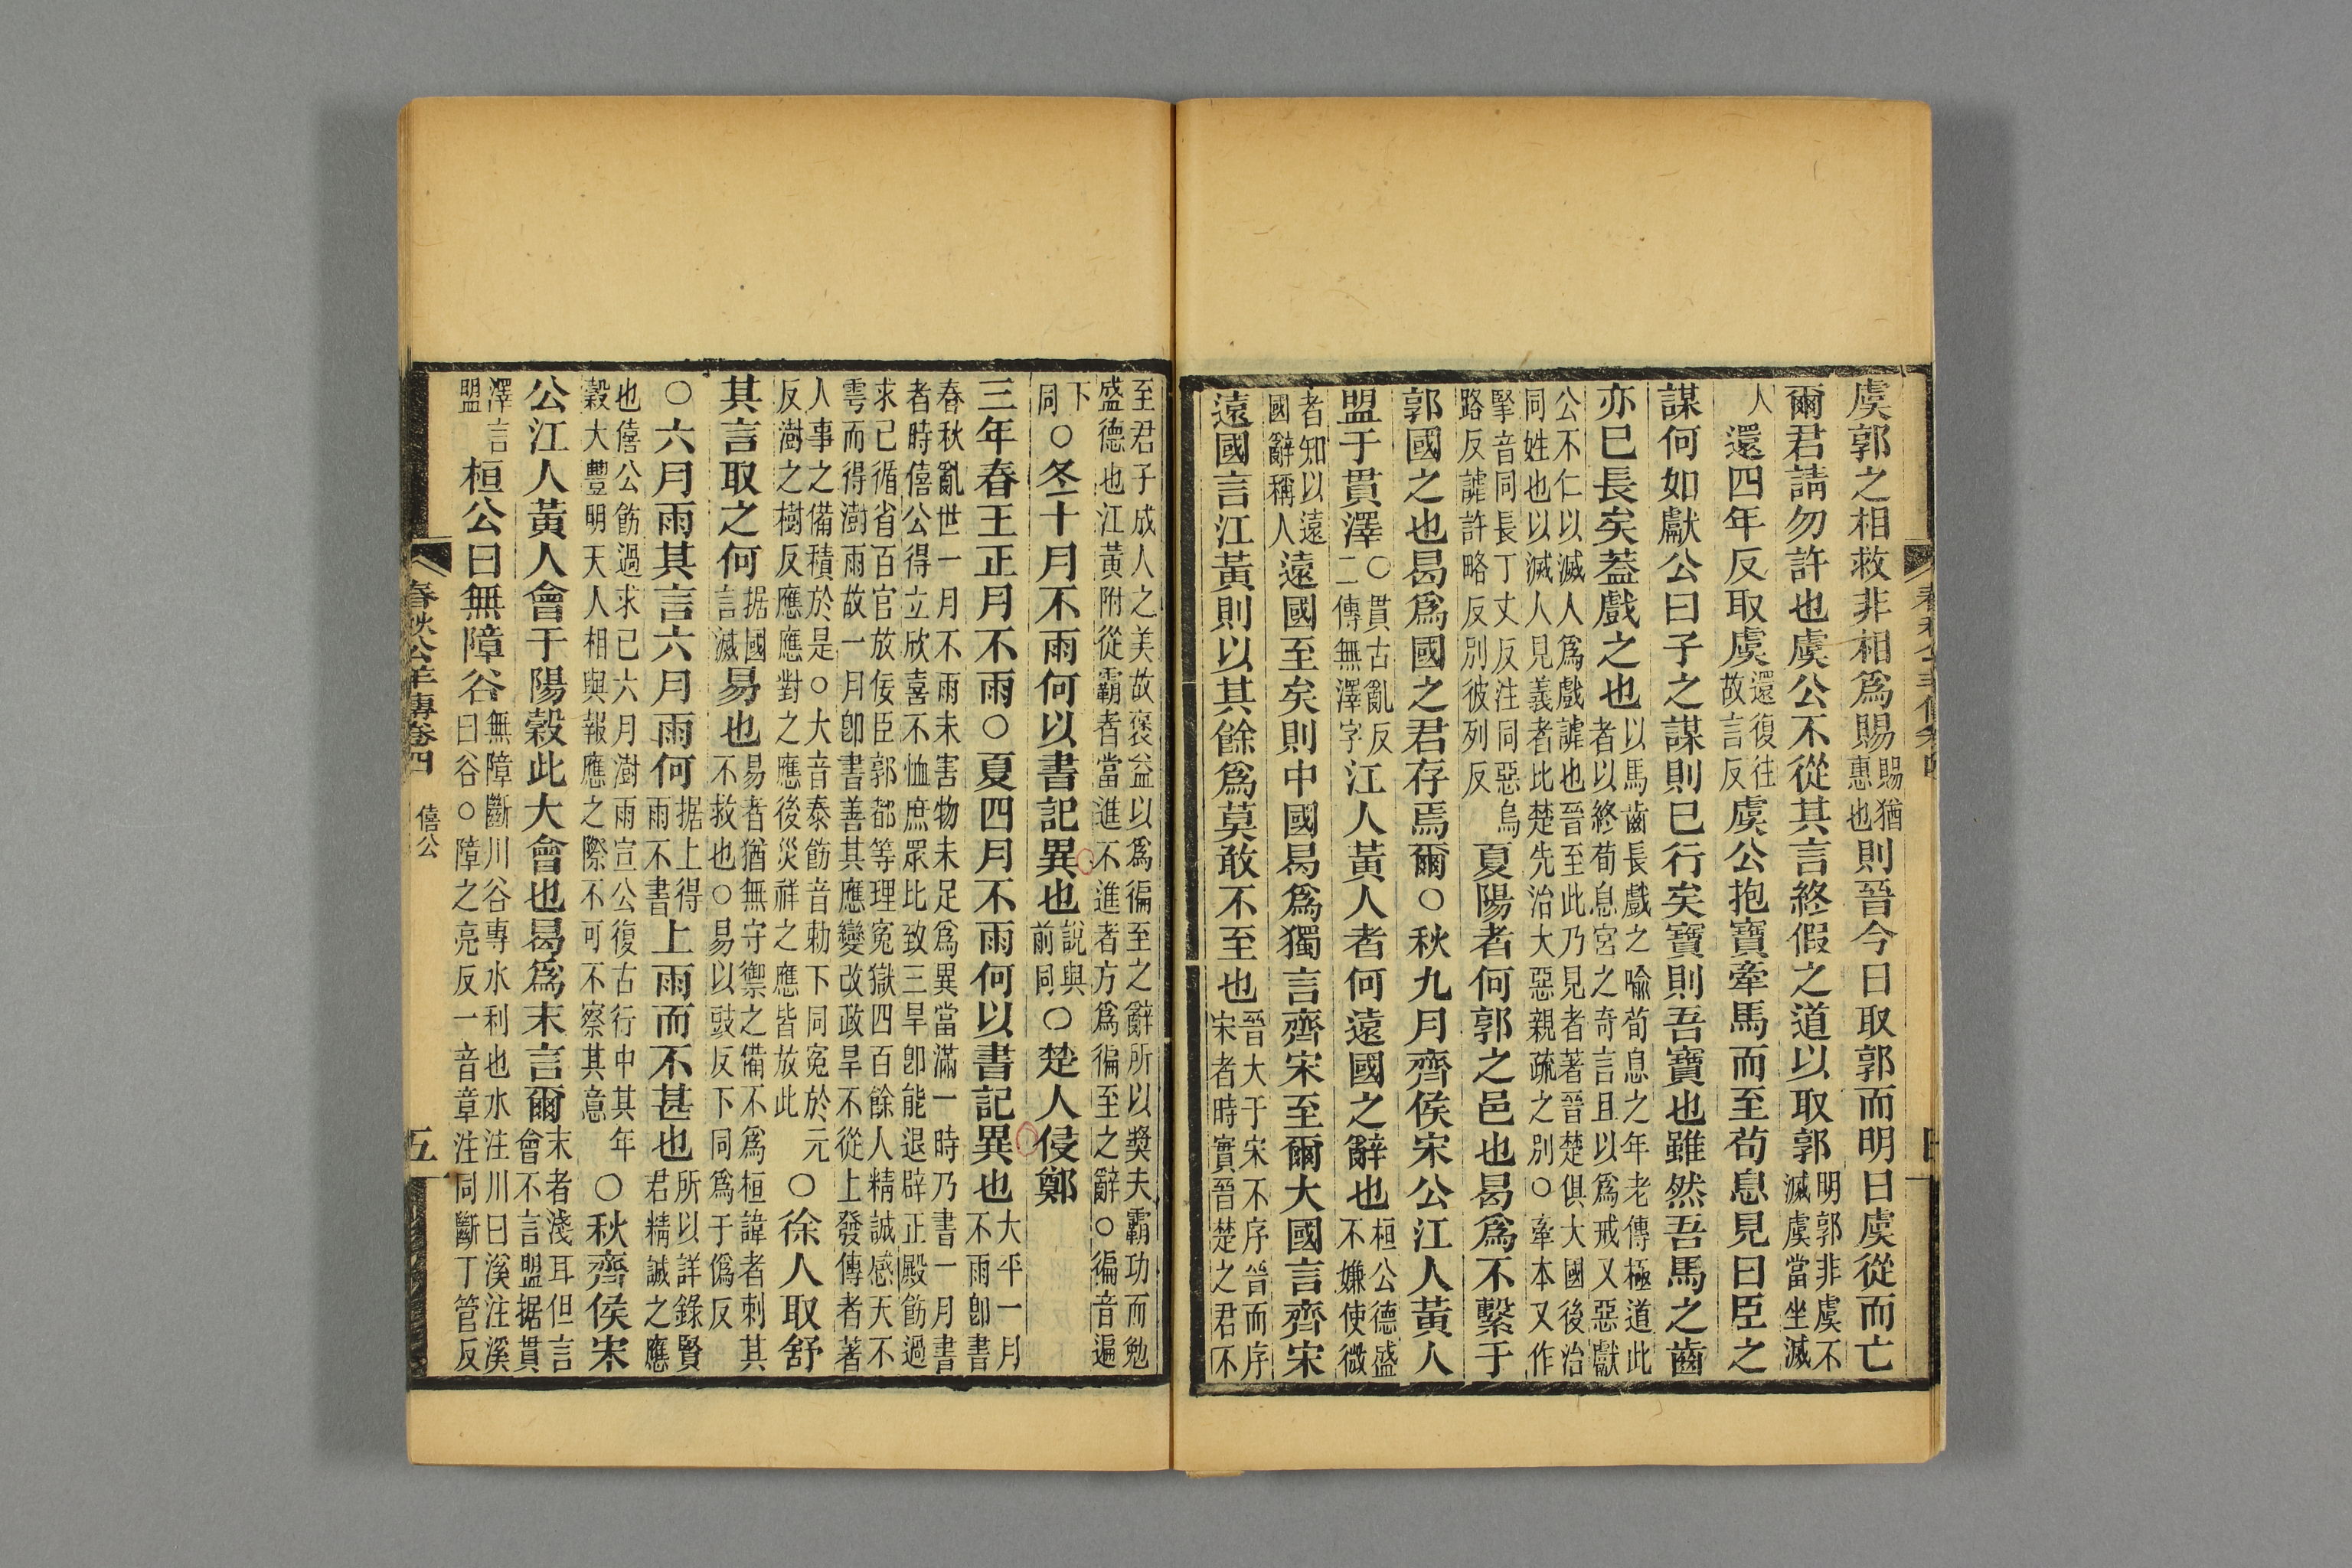 虞郭之相救非相爲賜賜猶惠也則晉今日取郭而明日虞從而亡
爾君請勿許也虞公不從其言終假之道以取郭明郭非虞不滅虞當坐滅
人還四年反取虞還復往故言反虞公抱寶牽馬而至荀息見曰臣之
謀何如獻公曰子之謀則已行矣寶則吾寶也雖然吾馬之齒
亦已長矣蓋戲之也以馬齒長戲之喻荀息之年老傳極道此者以終荀息宮之奇言且以爲戒又惡獻
公不仁以滅人爲戲謔也晉至此乃見者著晉楚俱大國後治同姓也以滅人見義者比楚先治大惡親疏之別○牽本又作
掔音同長丁丈反注同惡烏路反謔許略反別彼列反夏陽者何郭之邑也曷爲不繫于
郭國之也曷爲國之君存焉爾○秋九月齊侯宋公江人黃人
盟于貫澤○貫古亂反二傳無澤字江人黃人者何遠國之辭也桓公德盛不嫌使微
者知以遠國辭稱人遠國至矣則中國曷爲獨言齊宋至爾大國言齊宋
遠國言江黃則以其餘爲莫敢不至也晉大于宋不序晉而序宋者時實晉楚之君不
至君子成人之美故褒益以爲徧至之辭所以獎夫霸功而勉盛德也江黃附從霸者當進不進者方爲徧至之辭○徧音遍
下同○冬十月不雨何以書記異也說與前同○楚人侵鄭
三年春王正月不雨○夏四月不雨何以書記異也大平一月不雨卽書
春秋亂世一月不雨未害物未足爲異當滿一時乃書一月書者時僖公得立欣喜不恤庶眾比致三旱卽能退辟正殿飭過
求已循省百官放佞臣郭都等理冤獄四百餘人精誠感天不雩而得澍雨故一月卽書善其應變改政旱不從上發傳者著
人事之備積於是○大音泰飭音勅下同冤於元反澍之樹反應應對之應後災祥之應皆放此○徐人取舒
其言取之何据國言滅易也易者猶無守禦之備不爲桓諱者刺其不救也○易以豉反下同爲于僞反
○六月雨其言六月雨何据上得雨不書上雨而不甚也所以詳錄賢君精誠之應
也僖公飭過求已六月澍雨宣公復古行中其年穀大豐明天人相與報應之際不可不察其意○秋齊侯宋
公江人黃人會于陽穀此大會也曷爲末言爾末者淺耳但言會不言盟据貫
澤言盟桓公曰無障谷無障斷川谷專水利也水注川曰溪注溪曰谷○障之亮反一音章注同斷丁管反
春秋公羊傳卷四 僖公 五